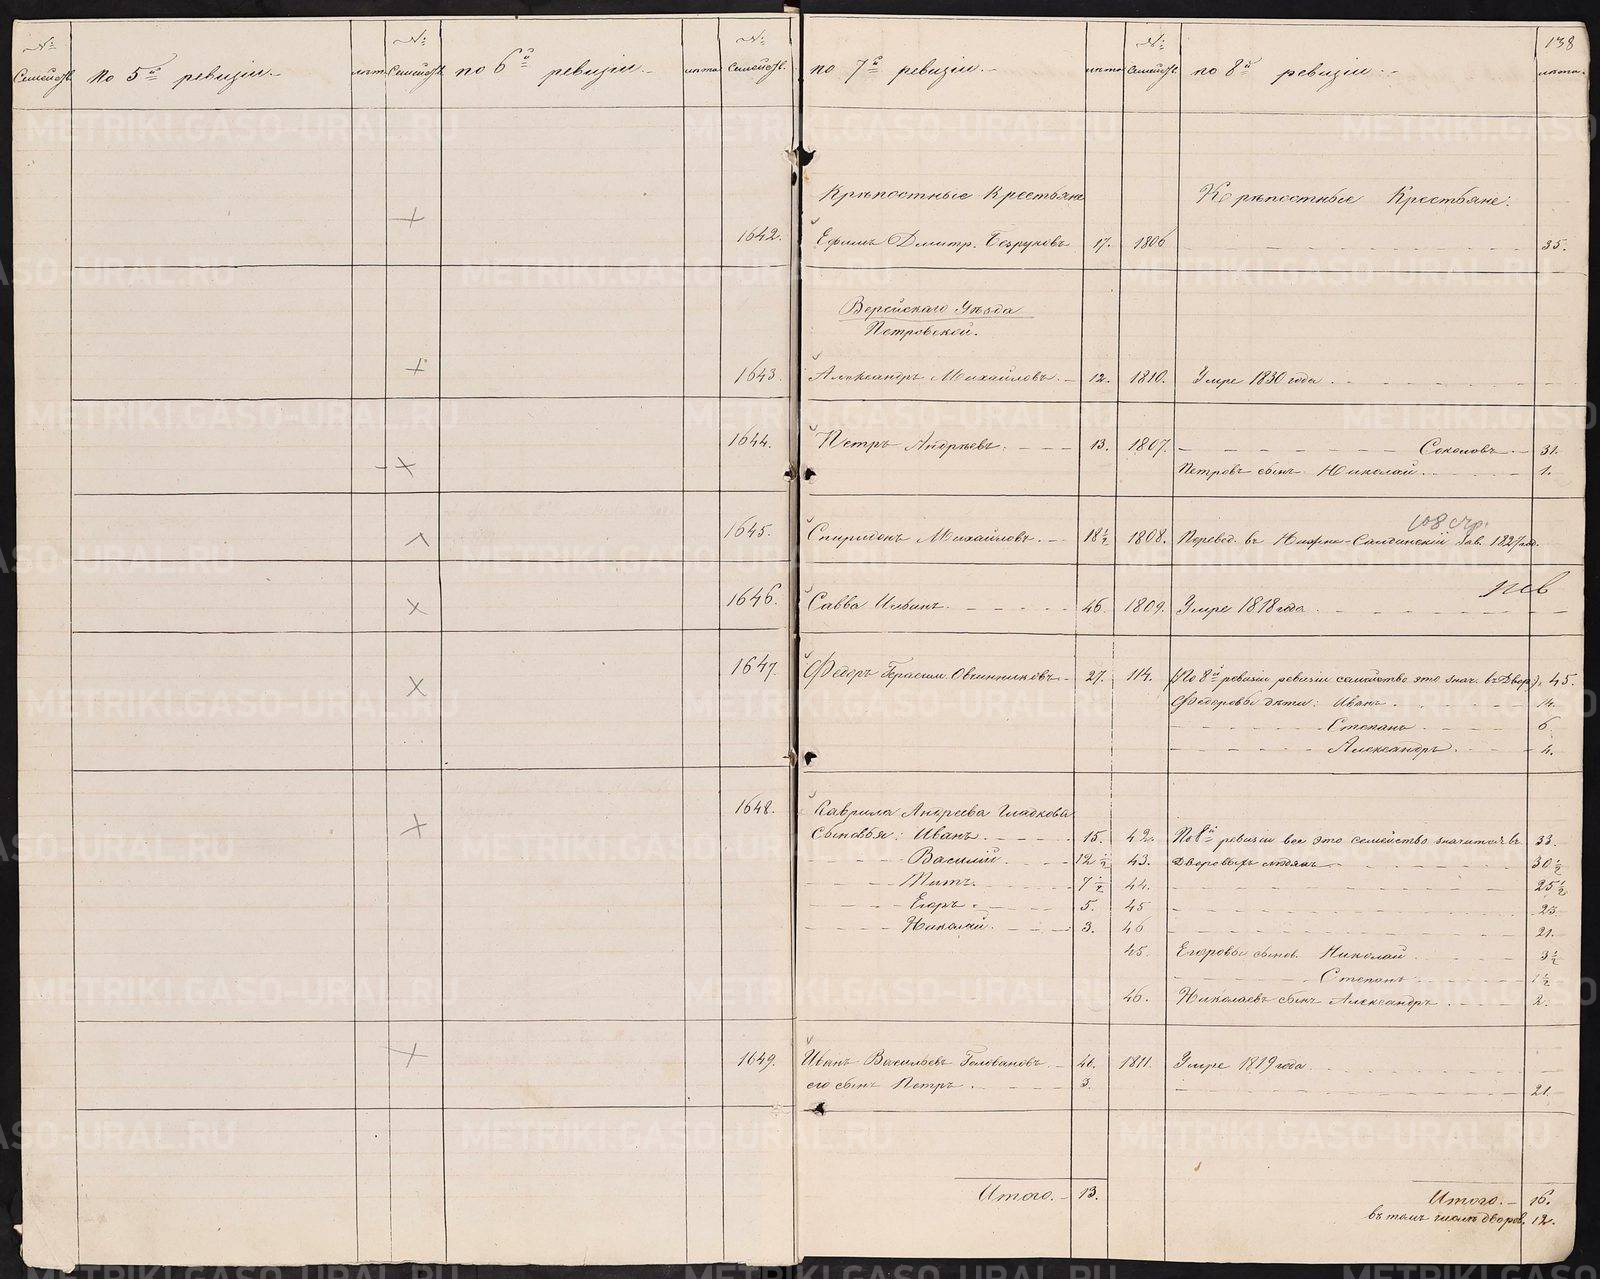 138
№ Семейств.
По 5й ревизіи.
лѣта
№ Семейств.
по 6й ревизіи.
лѣта
№ Семейств.
по 7й ревизіи.
лѣта
№ Семейств.
по 8й ревизіи.
лѣта.
Крѣпостные Крестьяне
Крѣпостные Крестьяне.
1642. Ефимъ Дмитр. Безруковъ 17. 1806 35.
Верейскаго Уѣзда
Петровской.
1643 Александръ Михайловъ. 12. 1810. Умре 1830 года.
1644. Петръ Андрѣевъ. 13. 1807. Соколовъ. 31.
Петровъ сынъ Николай 1.
108 стр.
1645. Спиридонъ Михайловъ. 18½ 1808. Перевед. въ Нижне-Салдинскій Зав. 1827 год.
1646. Савва Ильинъ. 46. 1809. Умре 1818 года
1647. Федоръ Герасим. Овчинниковъ 27. 114. (По 8й ревизіи ревизіи семейство это знач. въ Двор.). 45.
Федоровы дѣти: Иванъ. 14.
Степанъ 6
Александръ. 4.
1648. Гаврила Андреева Гладкова
Сыновья: Иванъ. 15. 42. По 8й ревизіи все это семейство значится въ 33.
Василій. 12½ 43. Дворовыхъ людяхъ 30½
Титъ. 7½ 44. 25½
Егоръ. 5. 45 23
Николай. 3. 46 21.
45. Егоровы сынов. Николай 3½
Степанъ 1½
46. Николаевъ сынъ Александръ 2.
1649. Иванъ Васильевъ Головановъ 46. 1811. Умре 1819 года.
его сынъ Петръ. 3. 21.
Итого. 13.
Итого. 16.
въ томъ числѣ дворов. 12.
METRIKI.GASO-URAL.RU